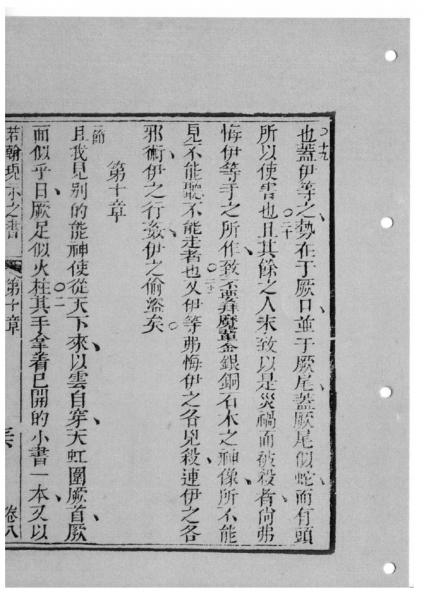 十九
也蓋伊等之勢在于厥口並于厥尾蓋厥尾似蛇而有頭
所以使害也二十且其餘之人未致以是災禍而被殺者尚弗
悔伊等手之所作致不要拜魔輩金銀銅石木之神像所不能
見不能聽不能走者也二一又伊等弗悔伊之各兇殺連伊之各
邪術伊之行姦伊之偷盜矣
第十章
一節
且我見別的能神使從天下來以雲自穿天虹圍厥首厥
面似乎日厥足似火柱二其手拿着已開的小書一本又以
若翰現示之書
第十章
卷八